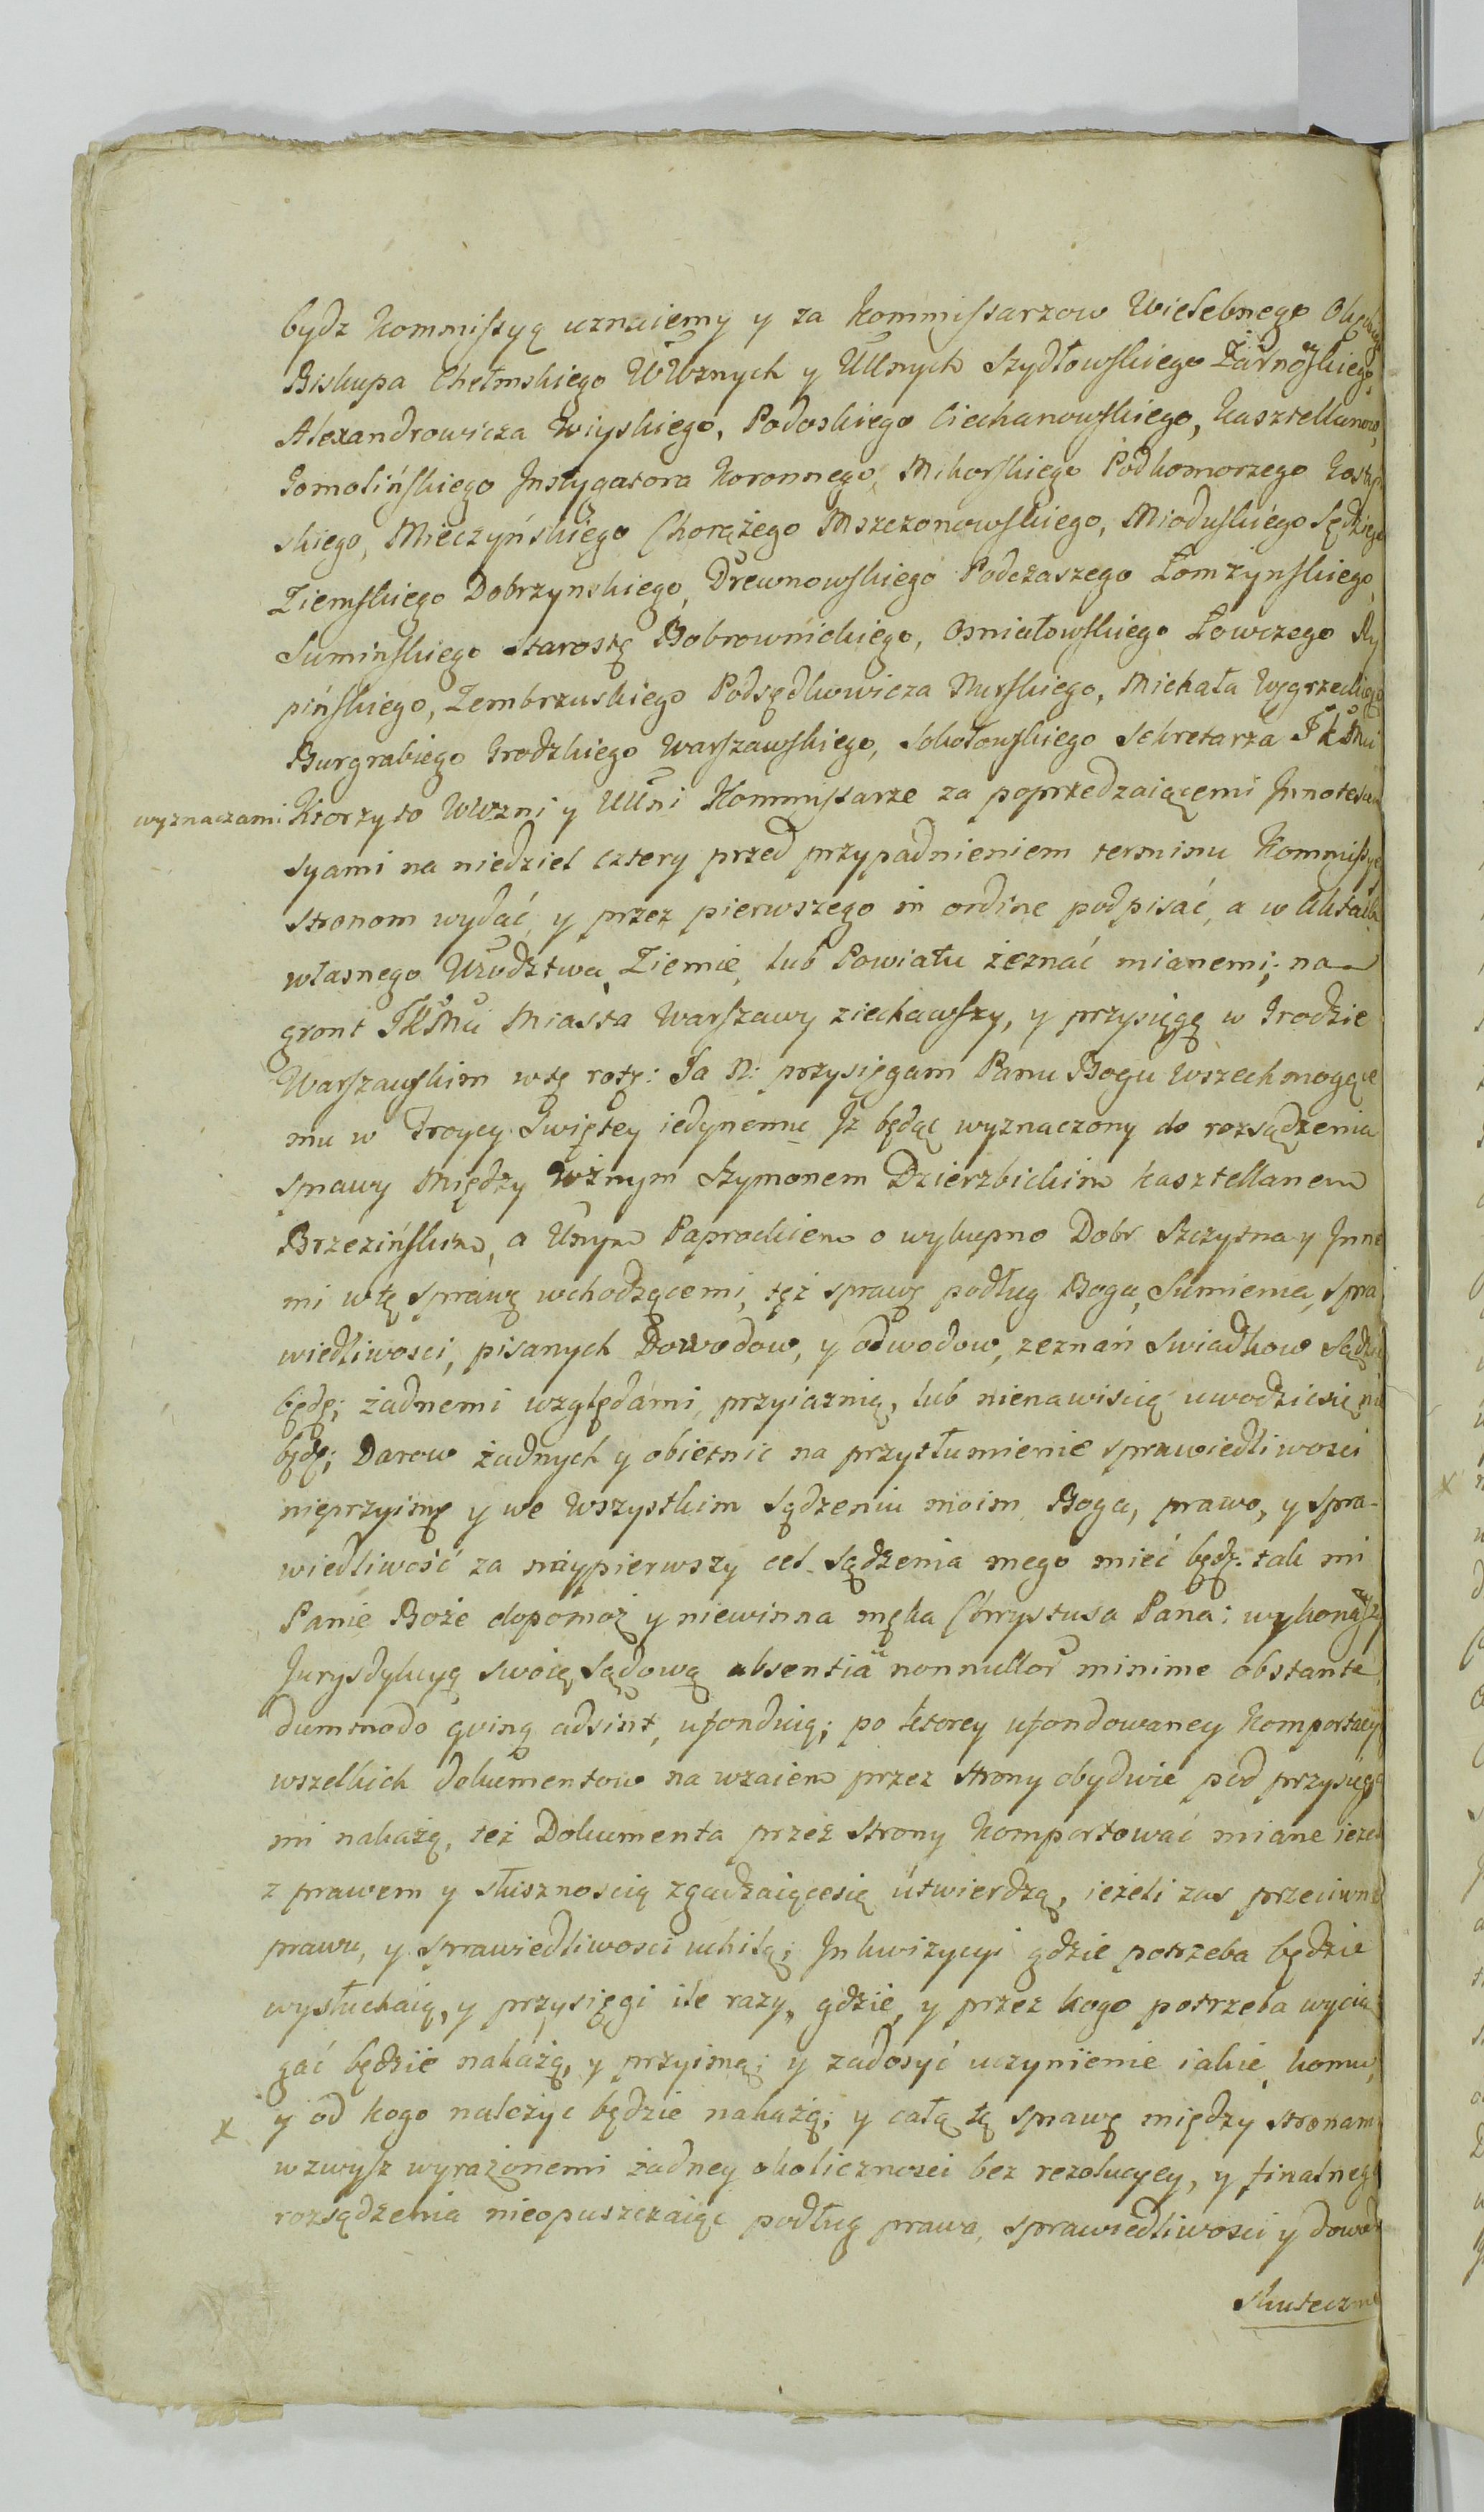 bydz Kommissyą uznaiemy y za Kommissarzow Wielebnego
Biskupa Chełmskiego WWznych y UUnych Szydłowskiego Żarnowskiego,
Alexandrowicza Wiyskiego, Podoskiego Ciechanowskiego, Kasztellanow,
Gomolińskiego Instygatora Koronnego, Mikorskiego Podkomorzego Gosty
skiego, Mieczyńskiego Chorążego Mszczonowskiego, Mioduskiego Sędziego
Ziemskiego Dobrzynskiego, Drewnowskiego Podczaszego Łomzynskiego,
Suminskiego Starostę Bobrownickiego, Osniałowskiego Łowczego Ry
pińskiego, Zembrzuskiego Podsędkowicza Nurskiego, Michała Węgrzeckiego
Burgrabiego Grodzkiego Warszawskiego, Sokołowskiego Sekretarza JKMci
wyznaczami Ktorzy to WWzni y UUni Kommissarze za poprzedzaiącemi Innotesce
syami na niedziel cztery przed przypadnieniem terminu Kommissyi
stronom wydać, y przez pierwszego in ordine podpisać, a w Aktach
własnego Urodztwa, Ziemie, lub Powiatu zeznać mianemi; na
gront JKMci Miasta Warszawy ziechawszy, y przysięgę w Grodzie
Warszawskim w tę rotę: Ja N: przysięgam Panu Bogu Wszechmogące
mu w Troycy Swiętey iedynemu Jż będąc wyznaczony do rozsądzenia
sprawy Między Wżnym Szymonem Dzierzbickim Kasztellanem
Brzezińskim, a Unym Paprockiem o wykupno Dobr Szczytna y Jnne
mi w tę sprawę wchodzącemi, tęż sprawę podług Boga, Sumienia, spra
wiedliwosci, pisanych Dowodow, y odwodow, zeznań Swiadkow Sądzić
będę; żadnemi względami, przyiaznią, lub nienawiscią uwodzic się nie
będę; Darow żadnych y obietnic na przytłumienie sprawiedliwosci
nieprzyimę y we Wszystkim Sądzeniu moim Boga, prawo, y spra-
wiedliwość za naypierwszy cel Sądzenia mego mieć będę. tak mi
Panie Boże dopomoż y niewinna męka Chrystusa Pana: wykonawszy
Jurysdykcyą swoię Sądową absentia nonnullor minime obstante,
dummodo qvinq adsint, ufonduią; po ktorey ufondowaney Komportacyi
wszelkich dokumentow na wzaiem przez strony obydwie pod przysięga
mi nakażą, też Dokumenta przez Strony Komportować miane ieżeli
z prawem y słusznoscią zgadzaiącesię utwierdzą, ieżeli zas przeciwne
prawu, y sprawiedliwosci uchilą; Jnkwizycyi gdzie potrzeba będzie
wysłuchaią, y przysięgi ile razy, gdzie, y przez kogo potrzeba wycią
gać będzie nakażą, y przyimą; y zadosyć uczynienie iakie, komu,
x y od kogo nalezyc będzie nakażą; y całą tę sprawę między stronami
wzwysz wyrażonemi żadney okolicznosci bez rezolucyey, y finalnego
rozsądzenia nieopuszczaiąc podług prawa, sprawiedliwosci y dowod
Skuteczne